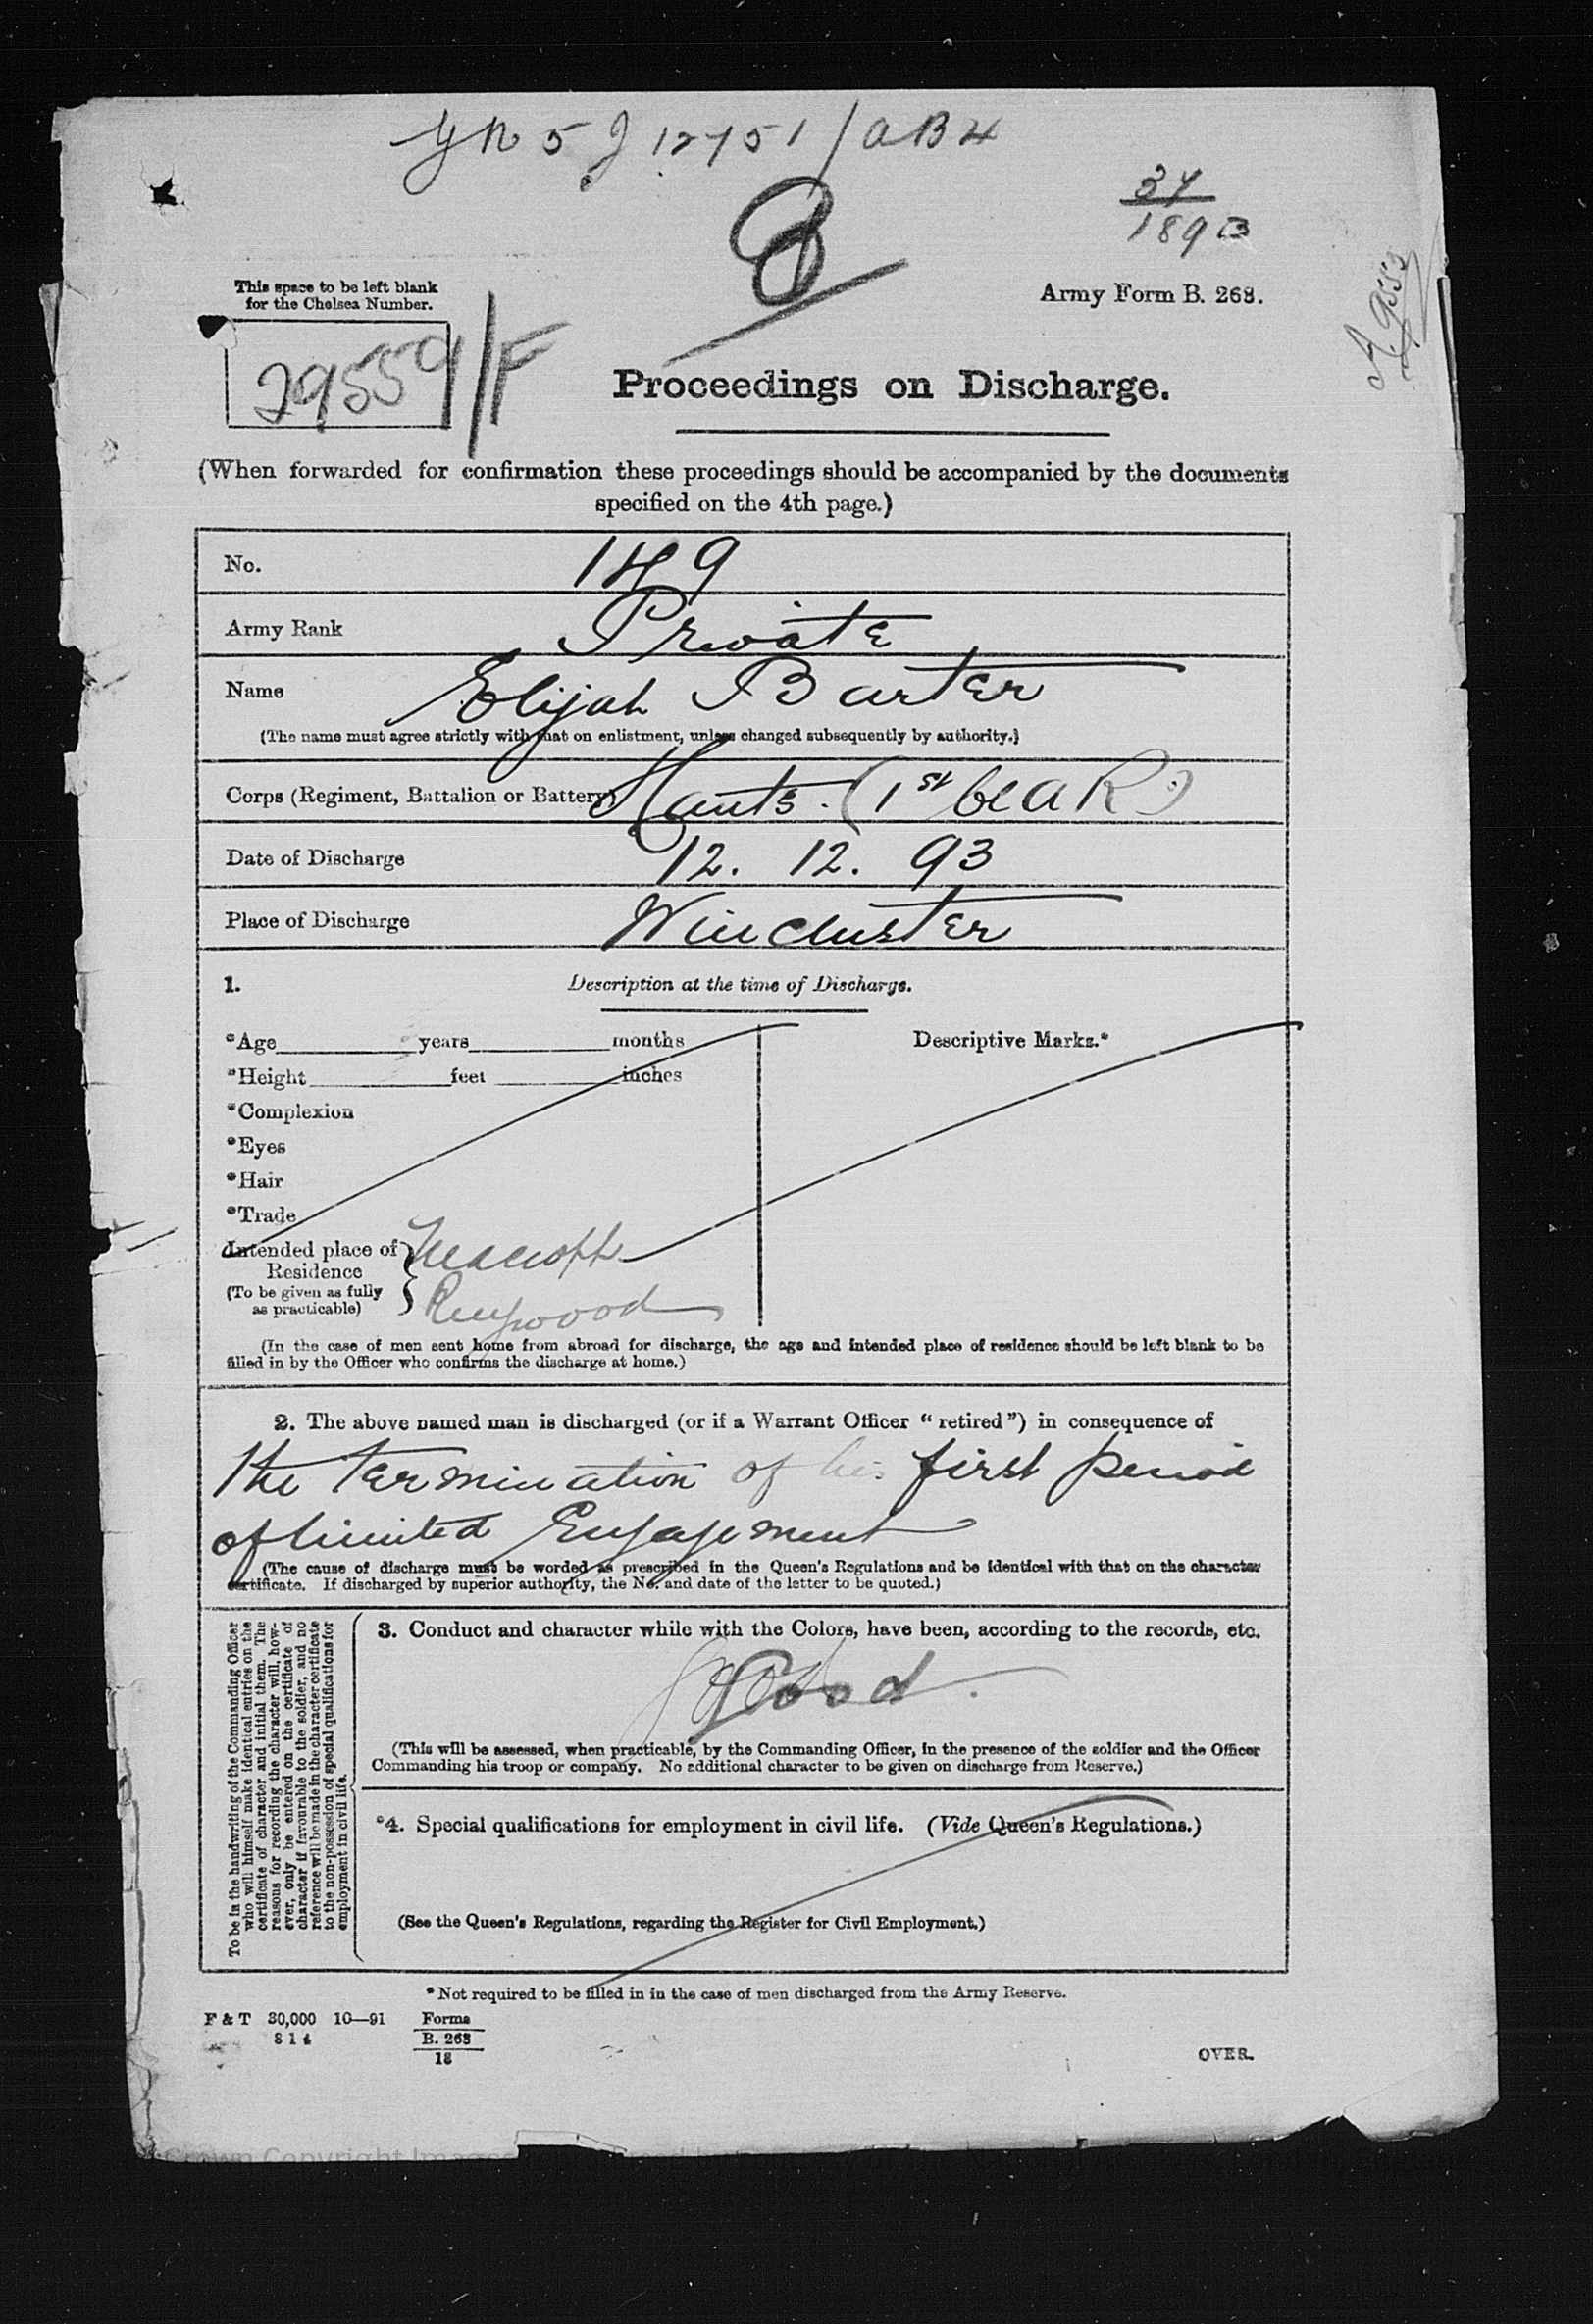 5 J 12751 / AB4
37
1893
A. 9553
This space to be left blank
for the Chelsea Number.
29559/F
Army Form B. 268.
Proceedings on Discharge.
(When forwarded for confirmation these proceedings should be accompanied by the documents
specified on the 4th page.)
No. 149
Army Rank Private
Name Elijah Barter
(The name must agree strictly with that on enlistment, unless changed subsequently by authority.)
Corps (Regiment, Battalion or Battery) Hants. (1st Cl A R)
Date of Discharge 12. 12. 93
Place of Discharge Winchester
1. Description at the time of Discharge.
*Age years months
Descriptive Marks.*
*Height feet inches
*Complexion
*Eyes
*Hair
*Trade
Intended place of
Residence
(To be given as fully
as practicable)
Ringwood
(In the case of men sent home from abroad for discharge, the age and intended place of residence should be left blank to be
filled in by the Officer who confirms the discharge at home.)
2. The above named man is discharged (or if a Warrant Officer "retired") in consequence of
the termination of his first period
of limited Engagement
(The cause of discharge must be worded as prescribed in the Queen's Regulations and be identical with that on the character
certificate. If discharged by superior authority, the No. and date of the letter to be quoted.)
To be in the handwriting of the Commanding Officer
who will himself make identical entries on the
certificate of character and initial them. The
reasons for recording the character will, how-
ever, only be entered on the certificate of
character if favourable to the soldier, and no
reference will be made in the character certificate
to the non-possession of special qualifications for
employment in civil life.
3. Conduct and character while with the Colors, have been, according to the records, etc.
Good.
(This will be assessed, when practicable, by the Commanding Officer, in the presence of the soldier and the Officer
Commanding his troop or company. No additional character to be given on discharge from Reserve.)
*4. Special qualifications for employment in civil life. (Vide Queen's Regulations.)
(See the Queen's Regulations, regarding the Register for Civil Employment.)
* Not required to be filled in in the case of men discharged from the Army Reserve.
F & T 30,000 10—91
814
Forms
B. 268
18
OVER.
Crown Copyright Image